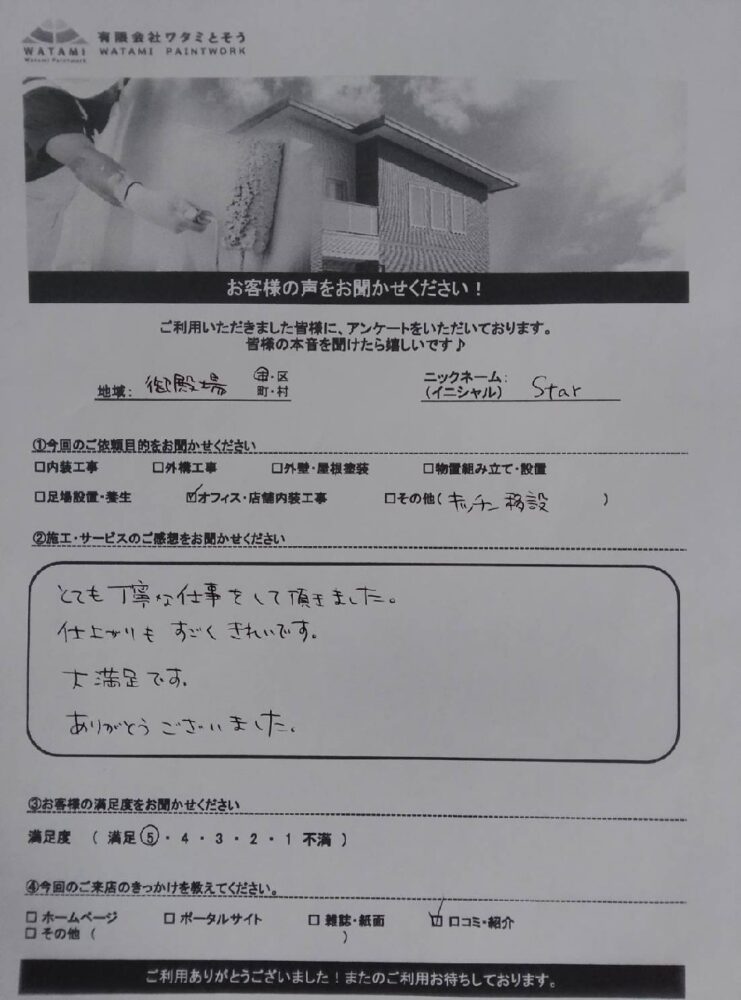 WATAMI
Watami Paintwork
有限会社ワタミとそう
WATAMI PAINTWORK
お客様の声をお聞かせください！
ご利用いただきました皆様に、アンケートをいただいております。
皆様の本音を聞けたら嬉しいです♪
地域: 御殿場 市・区 町・村
ニックネーム: (イニシャル) Star
①今回のご依頼目的をお聞かせください
□内装工事 □外構工事 □外壁・屋根塗装 □物置組み立て・設置
□足場設置・養生 ☑オフィス・店舗内装工事 □その他( キッチン移設 )
②施工・サービスのご感想をお聞かせください
とても丁寧な仕事をして頂きました。
仕上がりもすごくきれいです。
大満足です。
ありがとうございました。
③お客様の満足度をお聞かせください
満足度 ( 満足 5・4・3・2・1 不満 )
④今回のご来店のきっかけを教えてください。
□ ホームページ □ ポータルサイト □ 雑誌・紙面 ☑ 口コミ・紹介
□ その他 ( )
ご利用ありがとうございました！またのご利用お待ちしております。